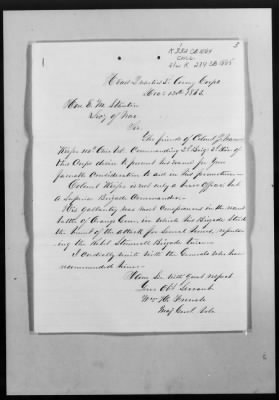 3
Head Quarters 3d Army Corps
Dec 13th 1863.
Hon E. M. Stanton
Secy of War
Sir
The friends of Colonel J. Warren
Keifer 110th Ohio Vol. Commanding 2d Brig 3d Div of
this Corps desire to present his name for your
favorable Consideration to aid in his promotion.
Colonel Keifer is not only a brave officer but
a Superior Brigade Commander.
His gallantry was most conspicuous in the recent
battle of Orange Grove, in which his Brigade Stood
the brunt of the attack for several hours, repuls-
ing the Rebel Stonewall Brigade twice.
I cordially unite with the Generals who have
recommended him.
I am Sir With Great respect
Your Obt Servant
Wm H. French
Maj Genl Vols